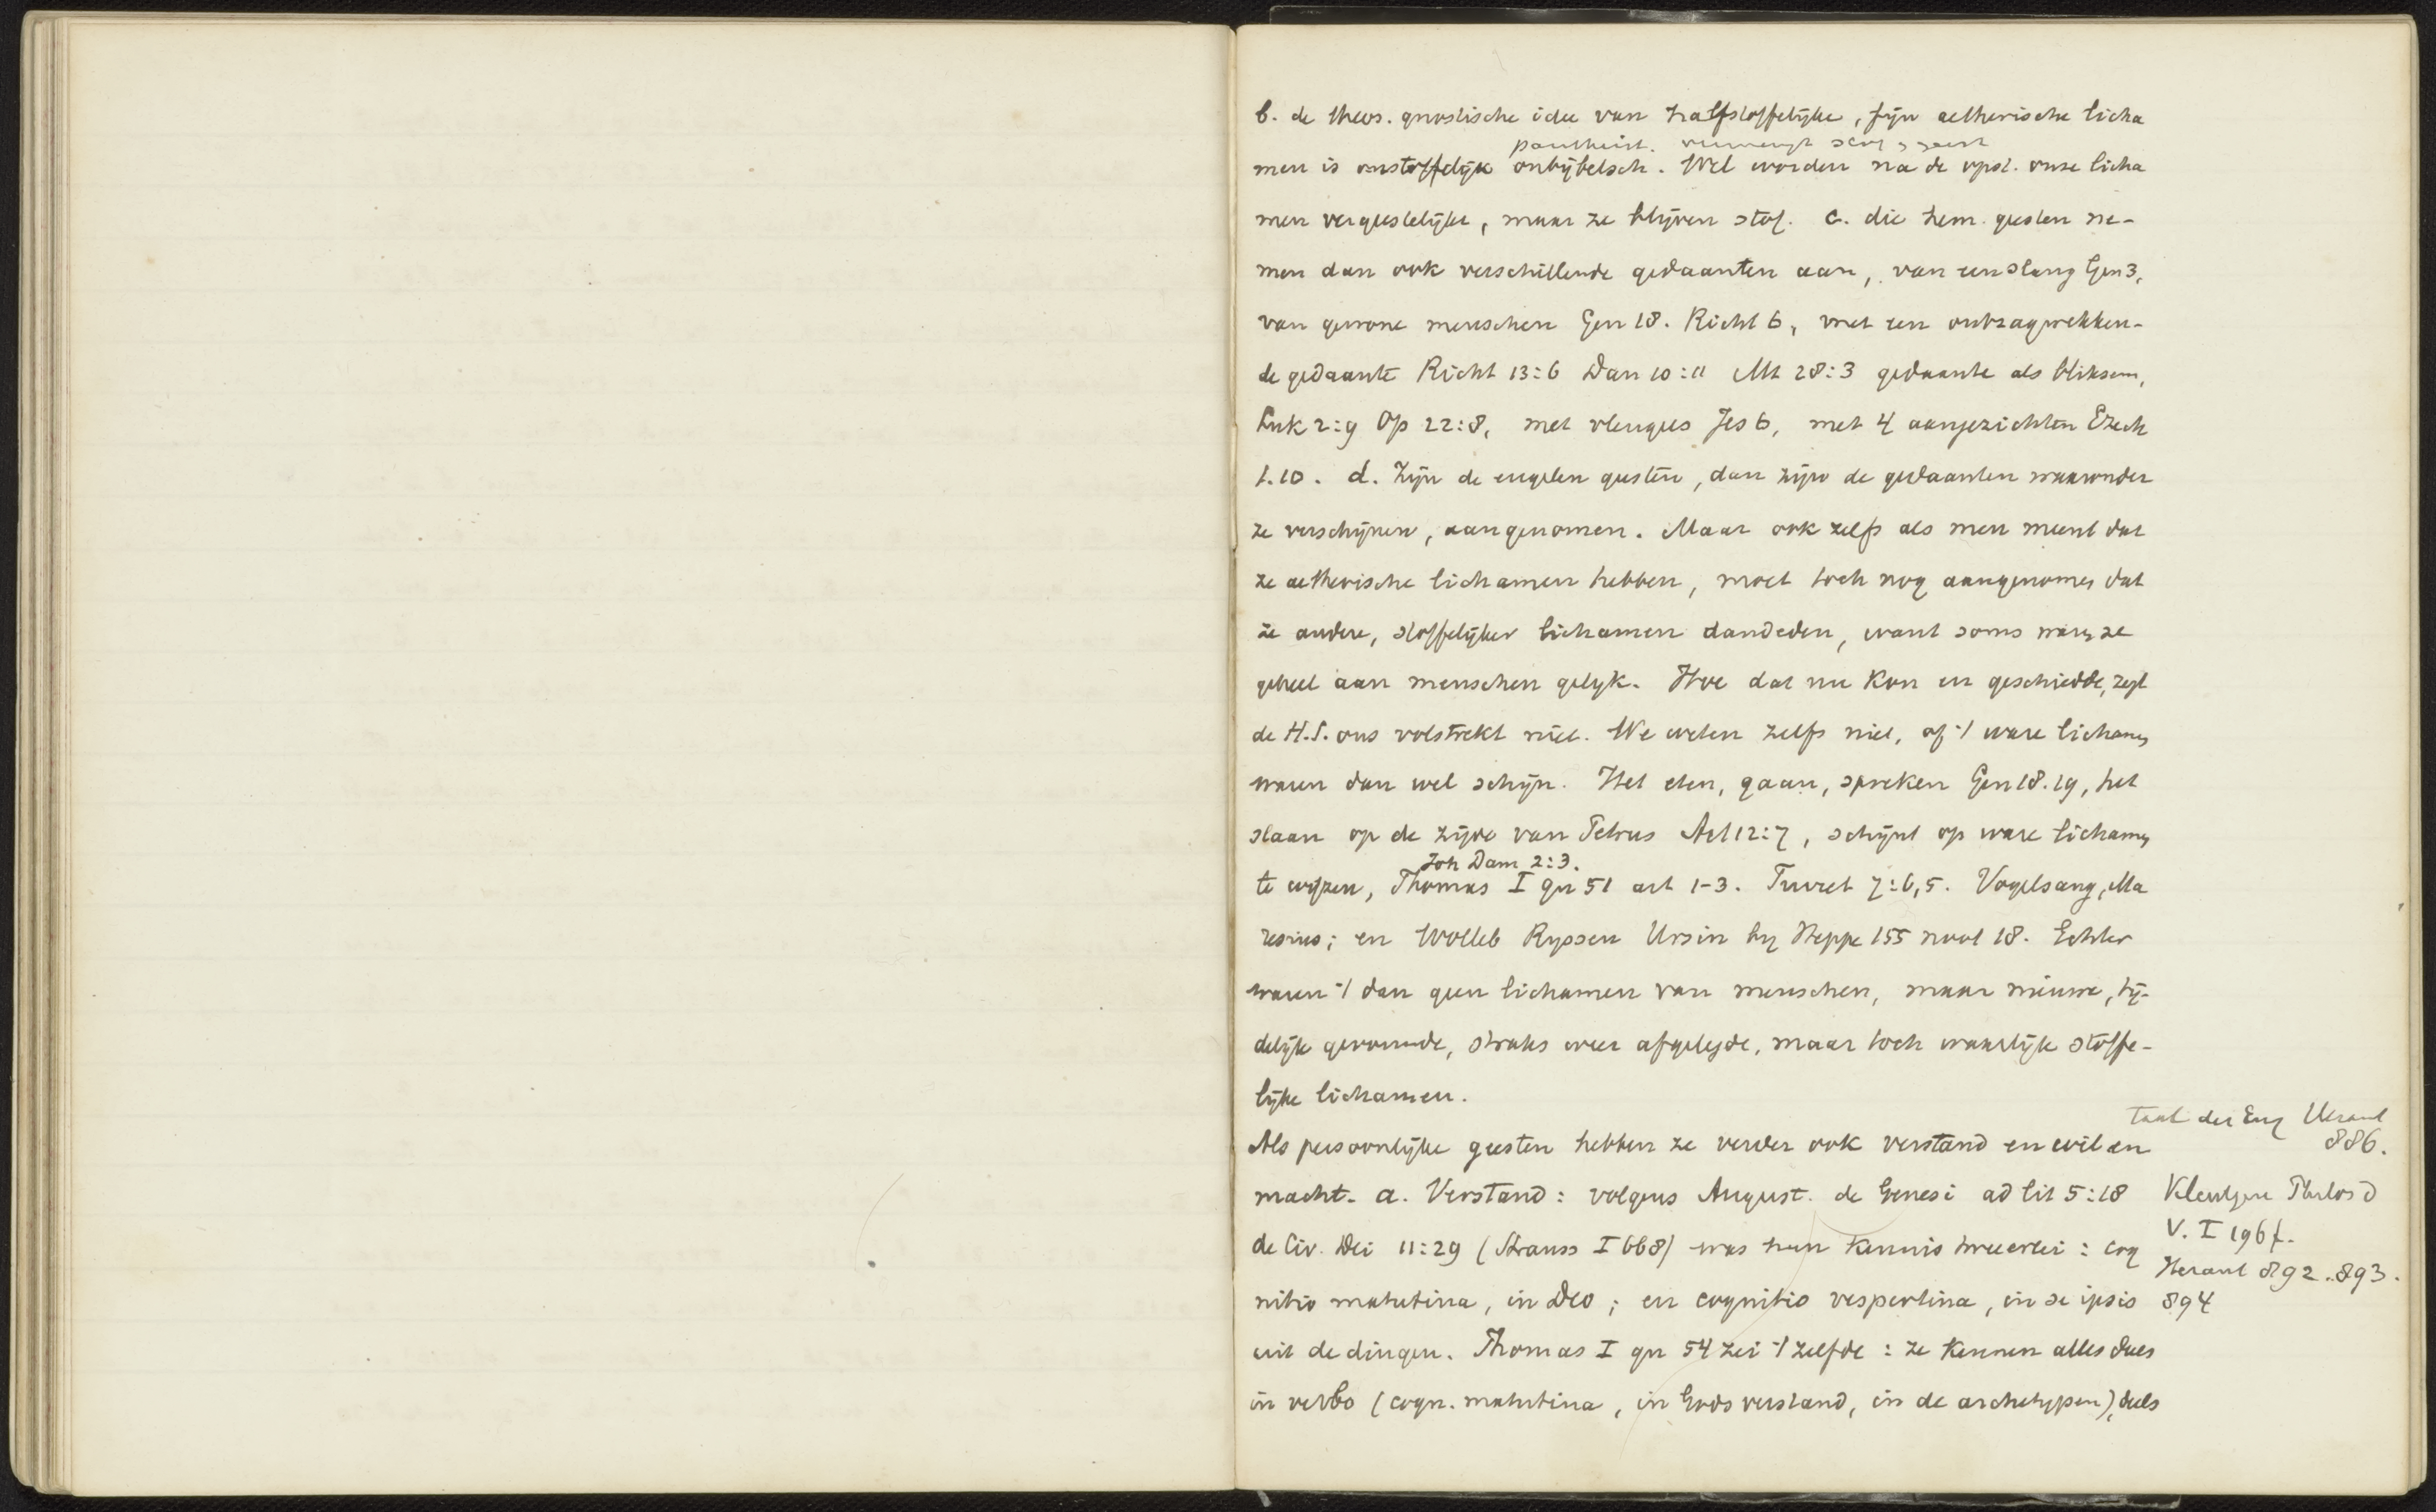 b. de theos. gnostische idee van halfstoffelijke, fijn aetherische licha
pantheist. vermengt stof & geest
men is onstoffelijk onbijbelsch. Wel worden na de opst. onze licha
men vergeestelijkt, maar ze blijven stof. c. die hem. geesten ne-
men dan ook verschillende gedaanten aan, van een slang Gen 3,
van gewone menschen Gen 18. Richt 6, met een ontzagwekken-
de gedaante Richt 13:6 Dan 10:11 Mt 28:3 gedaante als bliksem,
Luk 2:9 Op 22:8, met vleugels Jes 6, met 4 aangezichten Ezech
1.10. d. Zijn de engelen geesten, dan zijn de gedaanten waaronder
ze verschijnen, aangenomen. Maar ook zelfs als men meent dat
ze aetherische lichamen hebben, moet toch nog aangenomen dat
ze andere, stoffelijker lichamen aandeden, want soms waren ze
geheel aan menschen gelijk. Hoe dat nu kon en geschiedde, zegt
de H.S. ons volstrekt niet. We weten zelfs niet, of 't ware lichamen
waren dan wel schijn. Het eten, gaan, spreken Gen 18.19, het
slaan op de zijde van Petrus Act 12:7, schijnt op ware lichamen
Joh Dam 2:3.
te wijzen, Thomas I qu 51 art 1-3. Turret 7:6,5. Vogelsang, Ma
resius; en Wolleb Ryssen Ursin by Heppe 155 noot 18. Echter
waren 't dan geen lichamen van menschen, maar nieuwe, tij-
delijk gevormde, straks weer afgelegde, maar toch waarlijk stoffe-
lijke lichamen.
taal der Eng Heraut
886.
Als persoonlijke geesten hebben ze verder ook verstand en wil en
macht. a. Verstand: volgens August. de Genesi ad lit 5:18
Kleutgen Philos d
V. I 196f.
de Civ. Dei 11:29 (Strauss I 668) was hun kennis tweeerlei: cog
Heraut 892.893.
nitio matutina, in Deo; en cognitio vespertina, in se ipsis
894
uit de dingen. Thomas I qu 54 zei 't zelfde: ze kennen alles deels
in verbo (cogn. matutina, in Gods verstand, in de archetypen), deels